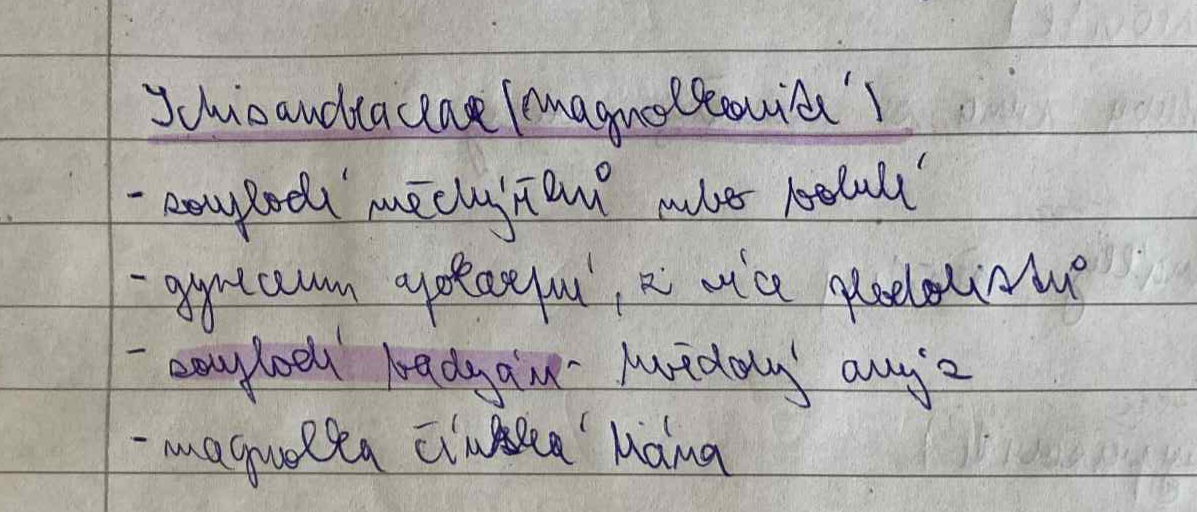 Schisandraceae (magnolkovité)
- souplodí měchýřků nebo bobulí
- gyneceum apokarpní, z více plodolistů
- souplodí badyán - hvězdový anýz
- magnolka čínská liána